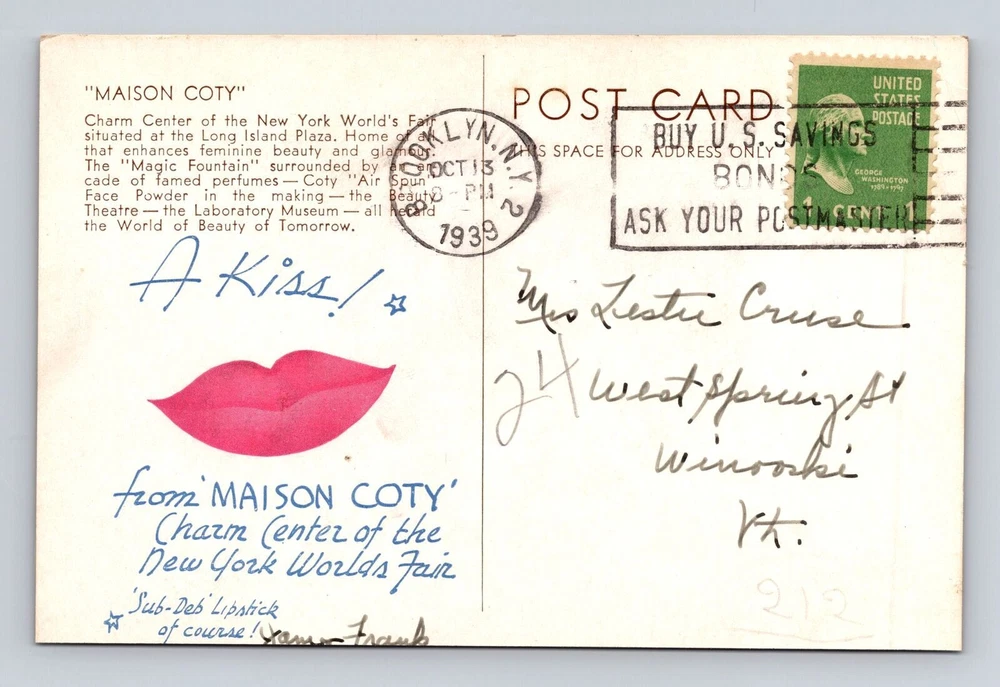 "MAISON COTY"
Charm Center of the New York World's Fair
situated at the Long Island Plaza. Home of all
that enhances feminine beauty and glamour.
The "Magic Fountain" surrounded by an ar-
cade of famed perfumes — Coty "Air Spun"
Face Powder in the making — the Beauty
Theatre — the Laboratory Museum — all herald
the World of Beauty of Tomorrow.
A Kiss!
from 'MAISON COTY'
Charm Center of the
New York Worlds Fair
'Sub-Deb' Lipstick
of course!
Frank
BROOKLYN, N.Y. 2
OCT 13
8 - PM
1939
POST CARD
THIS SPACE FOR ADDRESS ONLY
BUY U.S. SAVINGS
BONDS
ASK YOUR POSTMASTER
UNITED
STATES
POSTAGE
GEORGE
WASHINGTON
1789-1797
1 CENT 1
Mrs Leslie Cruse
24 West Spring St
Winooski
Vt.
212